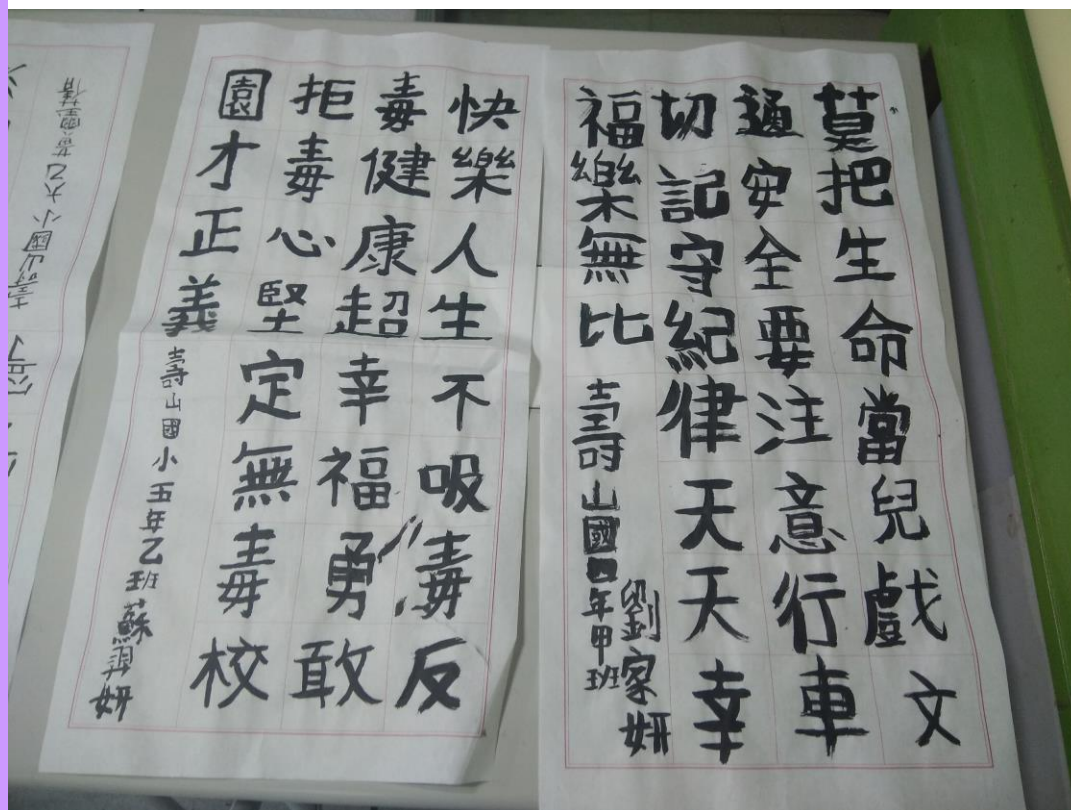 莫把生命當兒戲文
通安全要注意行車
切記守紀律天天幸
福樂無比 壽山國四年甲班
劉家妍
快樂人生不吸毒反
毒健康超幸福勇敢
拒毒心堅定無毒校
園才正義 壽山國小五年乙班 蘇妍
壽山國小六乙